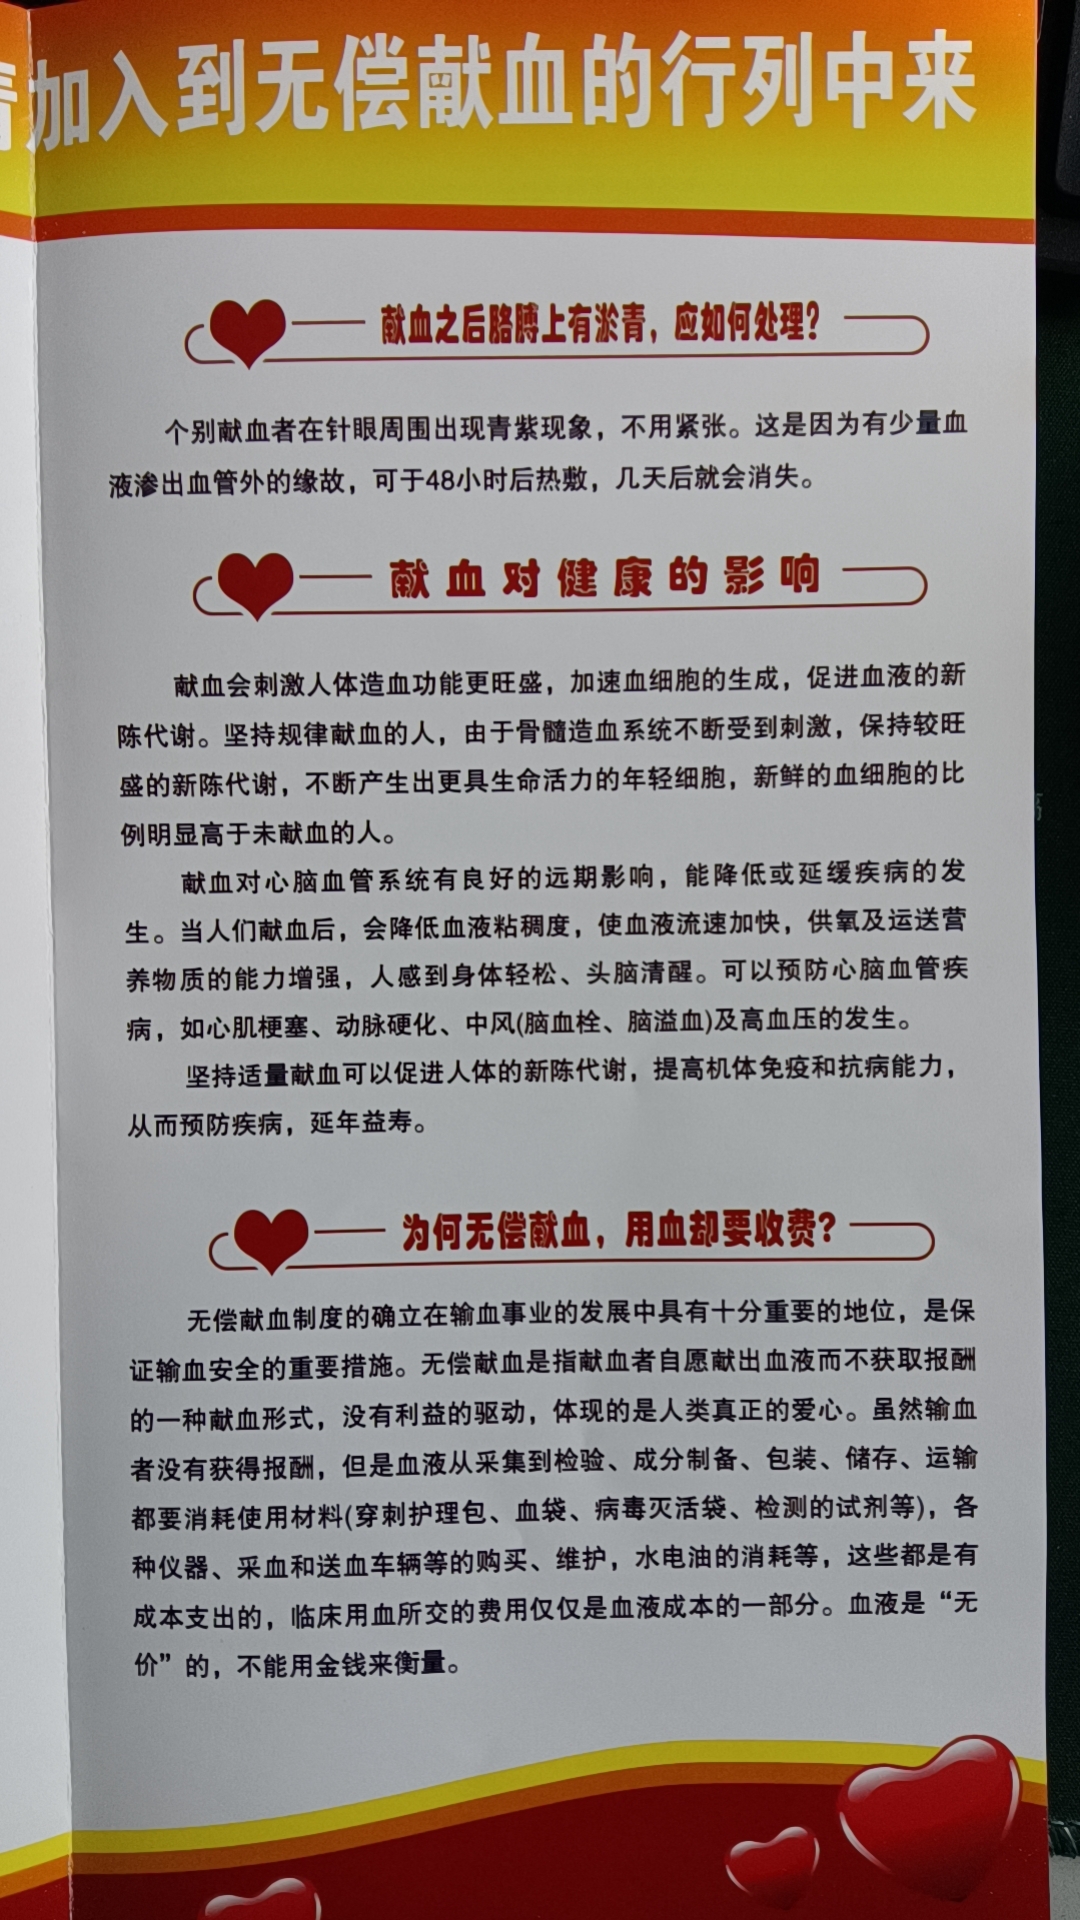 加入到无偿献血的行列中来
献血之后胳膊上有淤青，应如何处理？
个别献血者在针眼周围出现青紫现象，不用紧张。这是因为有少量血
液渗出血管外的缘故，可于48小时后热敷，几天后就会消失。
献血对健康的影响
献血会刺激人体造血功能更旺盛，加速血细胞的生成，促进血液的新
陈代谢。坚持规律献血的人，由于骨髓造血系统不断受到刺激，保持较旺
盛的新陈代谢，不断产生出更具生命活力的年轻细胞，新鲜的血细胞的比
例明显高于未献血的人。
献血对心脑血管系统有良好的远期影响，能降低或延缓疾病的发
生。当人们献血后，会降低血液粘稠度，使血液流速加快，供氧及运送营
养物质的能力增强，人感到身体轻松、头脑清醒。可以预防心脑血管疾
病，如心肌梗塞、动脉硬化、中风(脑血栓、脑溢血)及高血压的发生。
坚持适量献血可以促进人体的新陈代谢，提高机体免疫和抗病能力，
从而预防疾病，延年益寿。
为何无偿献血，用血却要收费？
无偿献血制度的确立在输血事业的发展中具有十分重要的地位，是保
证输血安全的重要措施。无偿献血是指献血者自愿献出血液而不获取报酬
的一种献血形式，没有利益的驱动，体现的是人类真正的爱心。虽然输血
者没有获得报酬，但是血液从采集到检验、成分制备、包装、储存、运输
都要消耗使用材料(穿刺护理包、血袋、病毒灭活袋、检测的试剂等)，各
种仪器、采血和送血车辆等的购买、维护，水电油的消耗等，这些都是有
成本支出的，临床用血所交的费用仅仅是血液成本的一部分。血液是“无
价”的，不能用金钱来衡量。